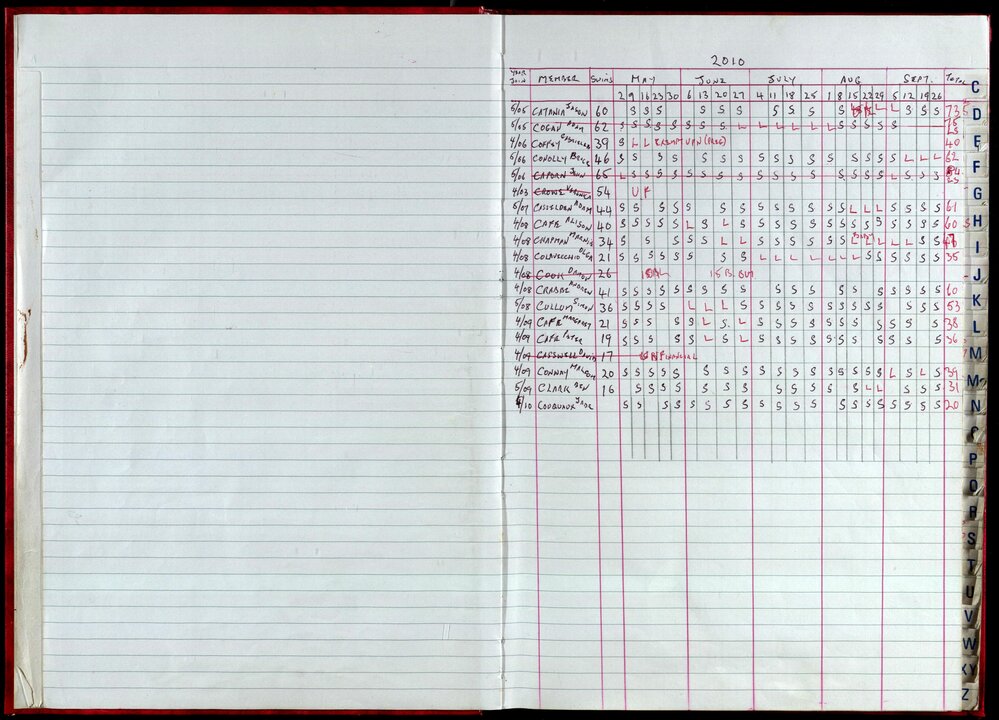 2010
YEAR JOIN MEMBER SWIMS MAY JUNE JULY AUG SEPT. TOTAL
2 9 16 23 30 6 13 20 27 4 11 18 25 1 8 15 22 29 5 12 19 26
5/05 CATANIA JASON 60 S S S S S S S S S S S S L L S S S 73
5/05 COGAN ADAM 62 S S S S S S S S L L L L L L L S S S S S 75
4/06 COFFEY GABRIELLE 39 S L L EXEMPTION (PREG) 40
5/06 CONOLLY BRUCE 46 S S S S S S S S S S S S S S S S L L L 62
5/06 CAPORN JOHN 65 L S S S S S S S S S S S S S S S S S L S S S
4/03 CROWE VERONICA 54 U F
5/07 CASSELDEN ADAM 44 S S S S S S S S S S S S S L L L S S S S 61
4/08 CAFE ALISON 40 S S S S S L S L S S S S S S S S S S S S S S 60
4/08 CHAPMAN MARNIE 34 S S S S S L L S S S S S S L L L L S S
4/08 COLAVECCHIO OLGA 21 S S S S S S S S L L L L L L L L S S S S S S 35
4/08 COOK DAMON 26
4/08 CRABBE ANDREW 41 S S S S S S S S S S S S S S S S S S S S S 60
5/08 CULLUM SIMON 36 S S S S L L L S S S S S S S S S S S S S S 53
4/09 CAFE MARGARET 21 S S S S S L S L S S S S S S S S S S S 38
4/09 CAFE PETER 19 S S S S S L S L S S S S S S S S S S S 36
4/09 CASSWELL DAVID 17 UNFINANCIAL
4/09 CONWAY MALCOLM 20 S S S S S S S S S S S S S S S S S S L S L S 39
5/09 CLARK BEN 16 S S S S S S S S S S S S S L L S S S S 31
4/10 COUQUAUX JADE S S S S S S S S S S S S S S S S S S S S 20
C
D
E
F
G
H
I
J
K
L
M
M
N
O
P
Q
R
S
T
U
V
W
XY
Z